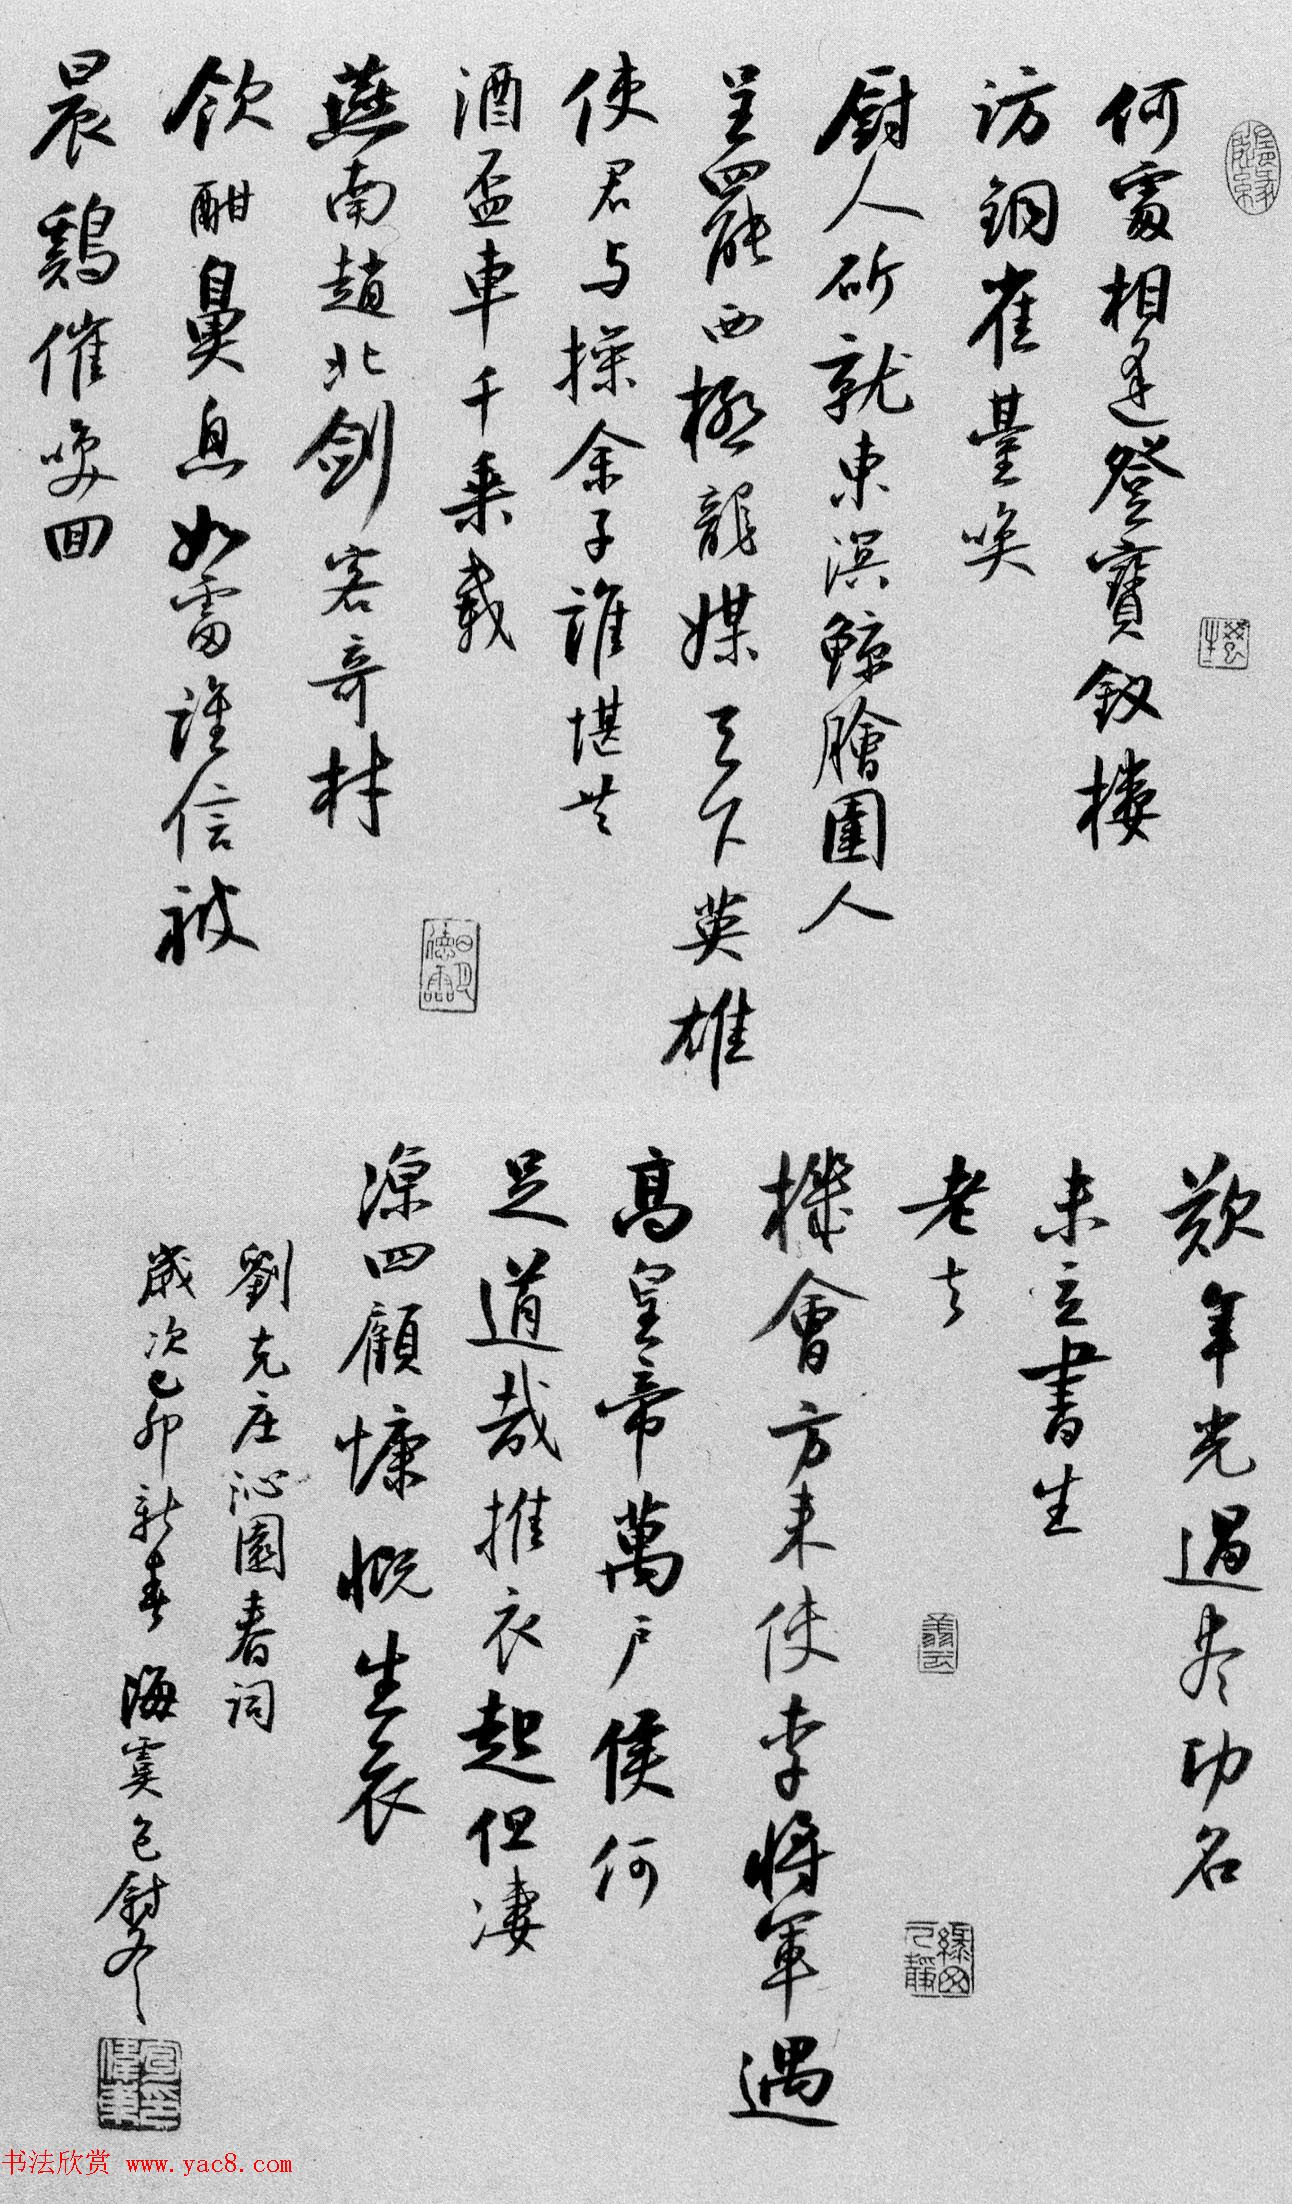 何處相逢登寶釵樓
訪銅雀臺唤
厨人斫就東溟鲸膾圉人
呈罷西極龍媒天下英雄
使君与操余子誰堪共
酒盃車千乘載
燕南趙北劍客奇材
飲酣鼻息如雷誰信被
晨鷄催唤回
歎年光過尽功名
未立書生
老去
機會方来使李將軍遇
高皇帝萬户侯何
足道哉推衣起但凄
涼四顧慷慨生哀
劉克庄沁園春詞
歲次己卯新春 海虞
书法欣赏 www.yac8.com